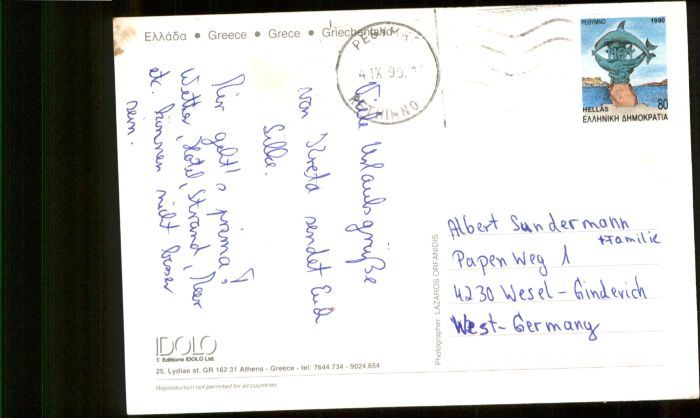 Ελλάδα • Greece • Grece • Griechenland
ΡΕΘΥΜΝ
4 IX 90
RETHIMNO
ΡΕΘΥΜΝΟ 1990
HELLAS 80
ΕΛΛΗΝΙΚΗ ΔΗΜΟΚΡΑΤΙΑ
Viele Urlaubsgrüße
von Kreta sendet Euch
Silke.
Mir geht's prima!
Wetter, Hotel, Strand, Meer
etc. können nicht besser
sein.
Albert Sundermann
+Familie
Papen Weg 1
4230 Wesel-Ginderich
West-Germany
Photographer: LAZAROS ORFANIDIS
IDOLO
© Editions IDOLO Ltd.
25, Lydias st. GR 162 31 Athens - Greece - tel: 7644.734 - 9024.654
Reproduction not permited for all countries